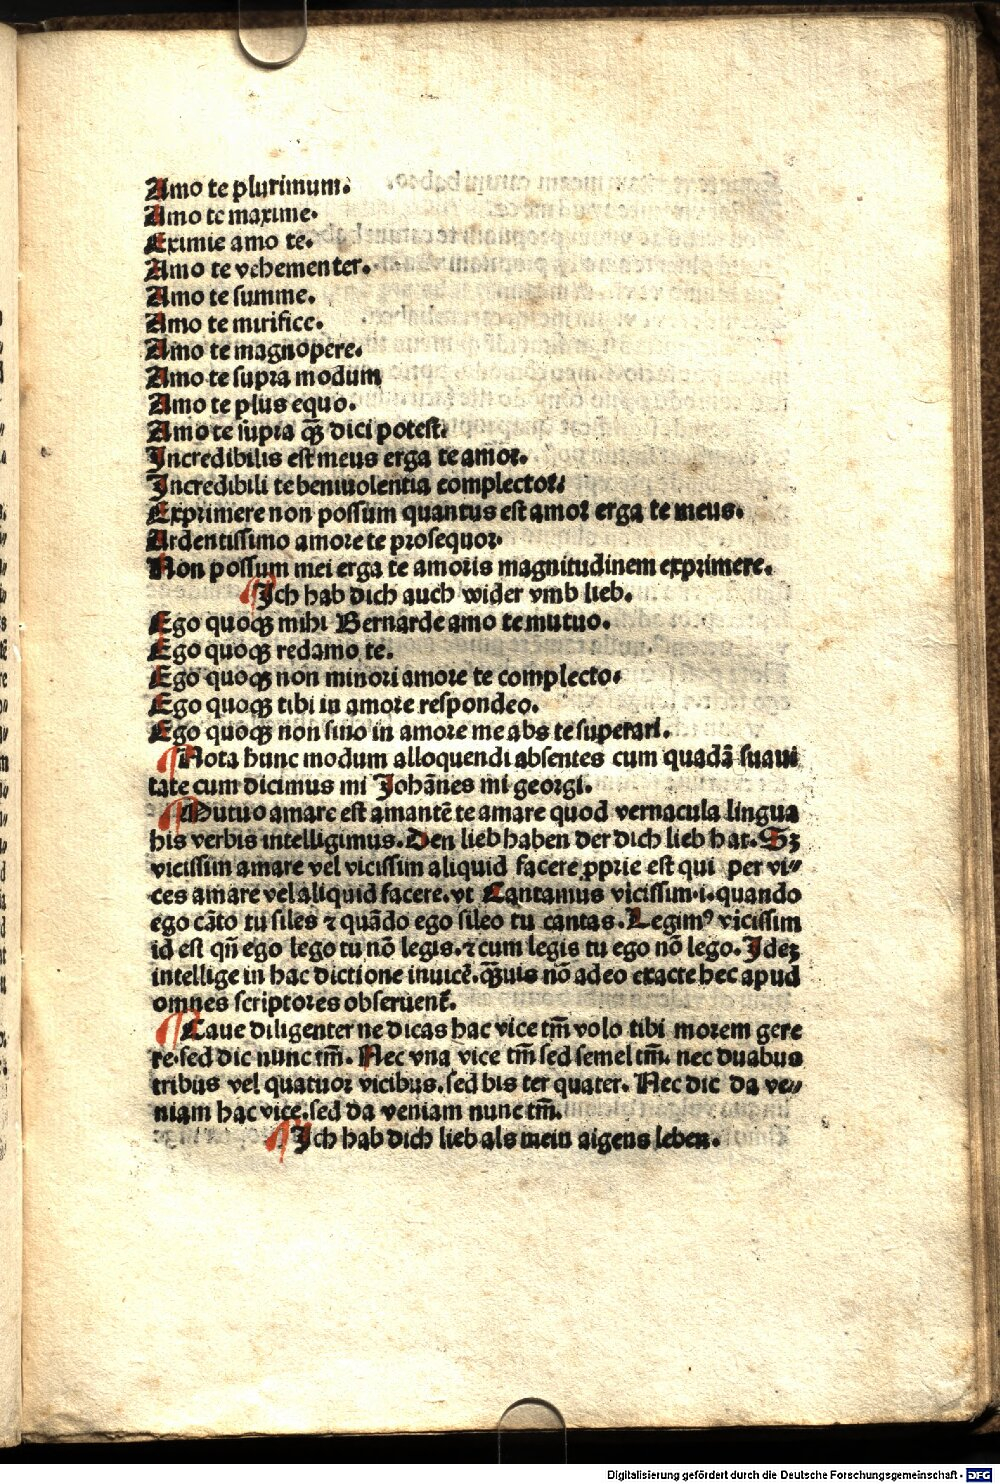 Amo te plurimum.
Amo te maxime.
Eximie amo te.
Amo te vehementer.
Amo te summe.
Amo te mirifice.
Amo te magnopere.
Amo te supra modum
Amo te plus equo.
Amo te supra q̃ȝ dici potest.
Incredibilis est meus erga te amor.
Incredibili te beniuolentia complector.
Exprimere non possum quantus est amor erga te meus.
Ardentissimo amore te prosequor.
Non possum mei erga te amoris magnitudinem exprimere.
¶ Ich hab dich auch wider vmb lieb.
Ego quoqȝ mihi Bernarde amo te mutuo.
Ego quoqȝ redamo te.
Ego quoqȝ non minori amore te complecto.
Ego quoqȝ tibi in amore respondeo.
Ego quoqȝ non sino in amore me abs te superari.
¶ Nota hunc modum alloquendi absentes cum quadã suaui
tate cum dicimus mi Johãnes mi georgi.
¶ Mutuo amare est amantẽ te amare quod vernacula lingua
his verbis intelligimus. Den lieb haben der dich lieb hat. Sȝ
vicissim amare vel vicissim aliquid facere ꝓprie est qui per vi⸗
ces amare vel aliquid facere. vt Cantamus vicissim .i. quando
ego cãto tu siles ⁊ quãdo ego sileo tu cantas. Legimꝰ vicissim
id est qñ ego lego tu nõ legis. ⁊ cum legis tu ego nõ lego. Ideȝ
intellige in hac dictione inuicẽ. q̃ȝuis nõ adeo exacte hec apud
omnes scriptores obseruent᷑.
¶ Caue diligenter ne dicas hac vice tm̃ volo tibi morem gere
re. sed dic nunc tm̃. Nec vna vice tm̃ sed semel tm̃. nec duabus
tribus vel quatuor vicibus. sed bis ter quater. Nec dic da ve⸗
niam hac vice. sed da veniam nunc tm̃.
¶ Ich hab dich lieb als mein aigens leben.
Digitalisierung gefördert durch die Deutsche Forschungsgemeinschaft - DFG